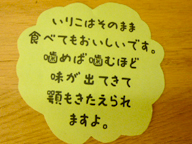 いりこはそのまま
食べてもおいしいです。
噛めば噛むほど
味が出てきて
顎もきたえられ
ますよ。